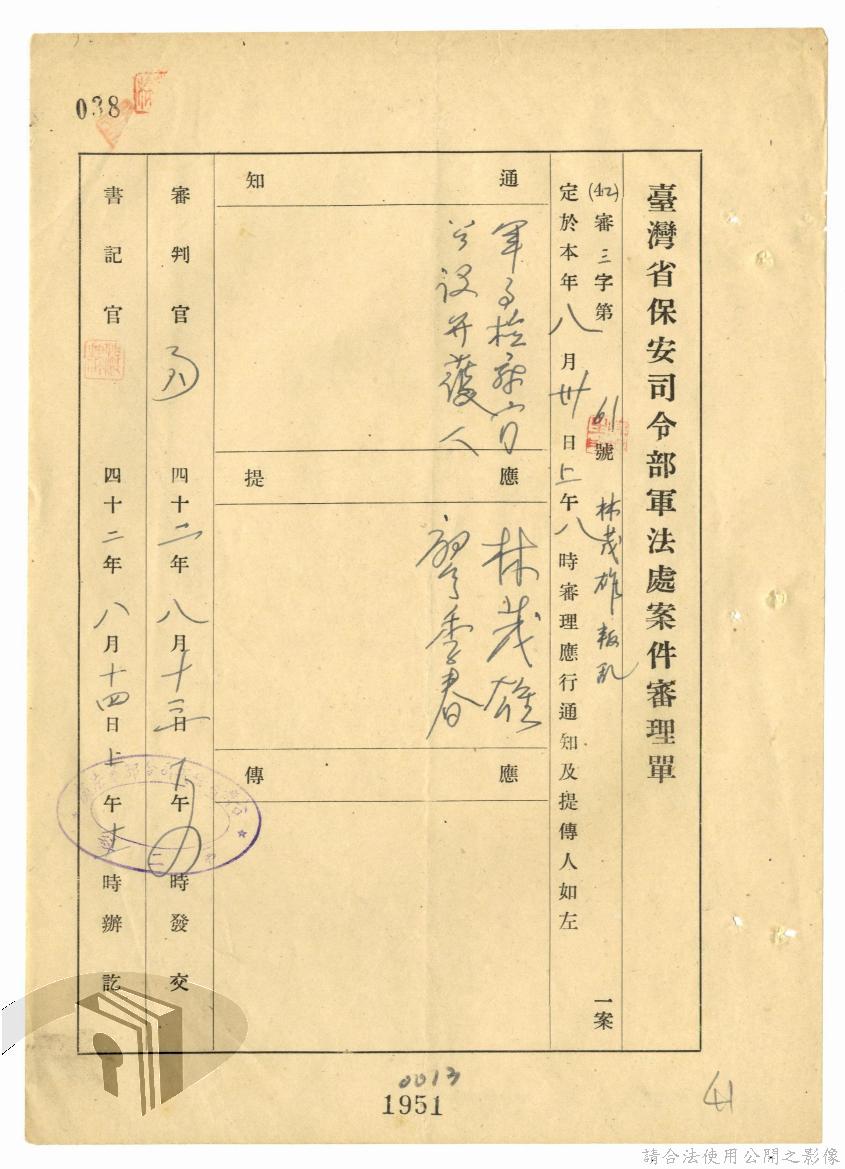 038
臺灣省保安司令部軍法處案件審理單
(42)審三字第61號 林茂雄叛乱 一案
定於本年八月卅日上午八時審理應行通知及提傳人如左
通知
軍事檢察官
公設辯護人
應提
林茂雄
廖季春
應傳
審判官 四十二年八月十三日下午 時發交
書記官 四十二年八月十四日上午十時辦訖
0013
1951
41
請合法使用公開之影像